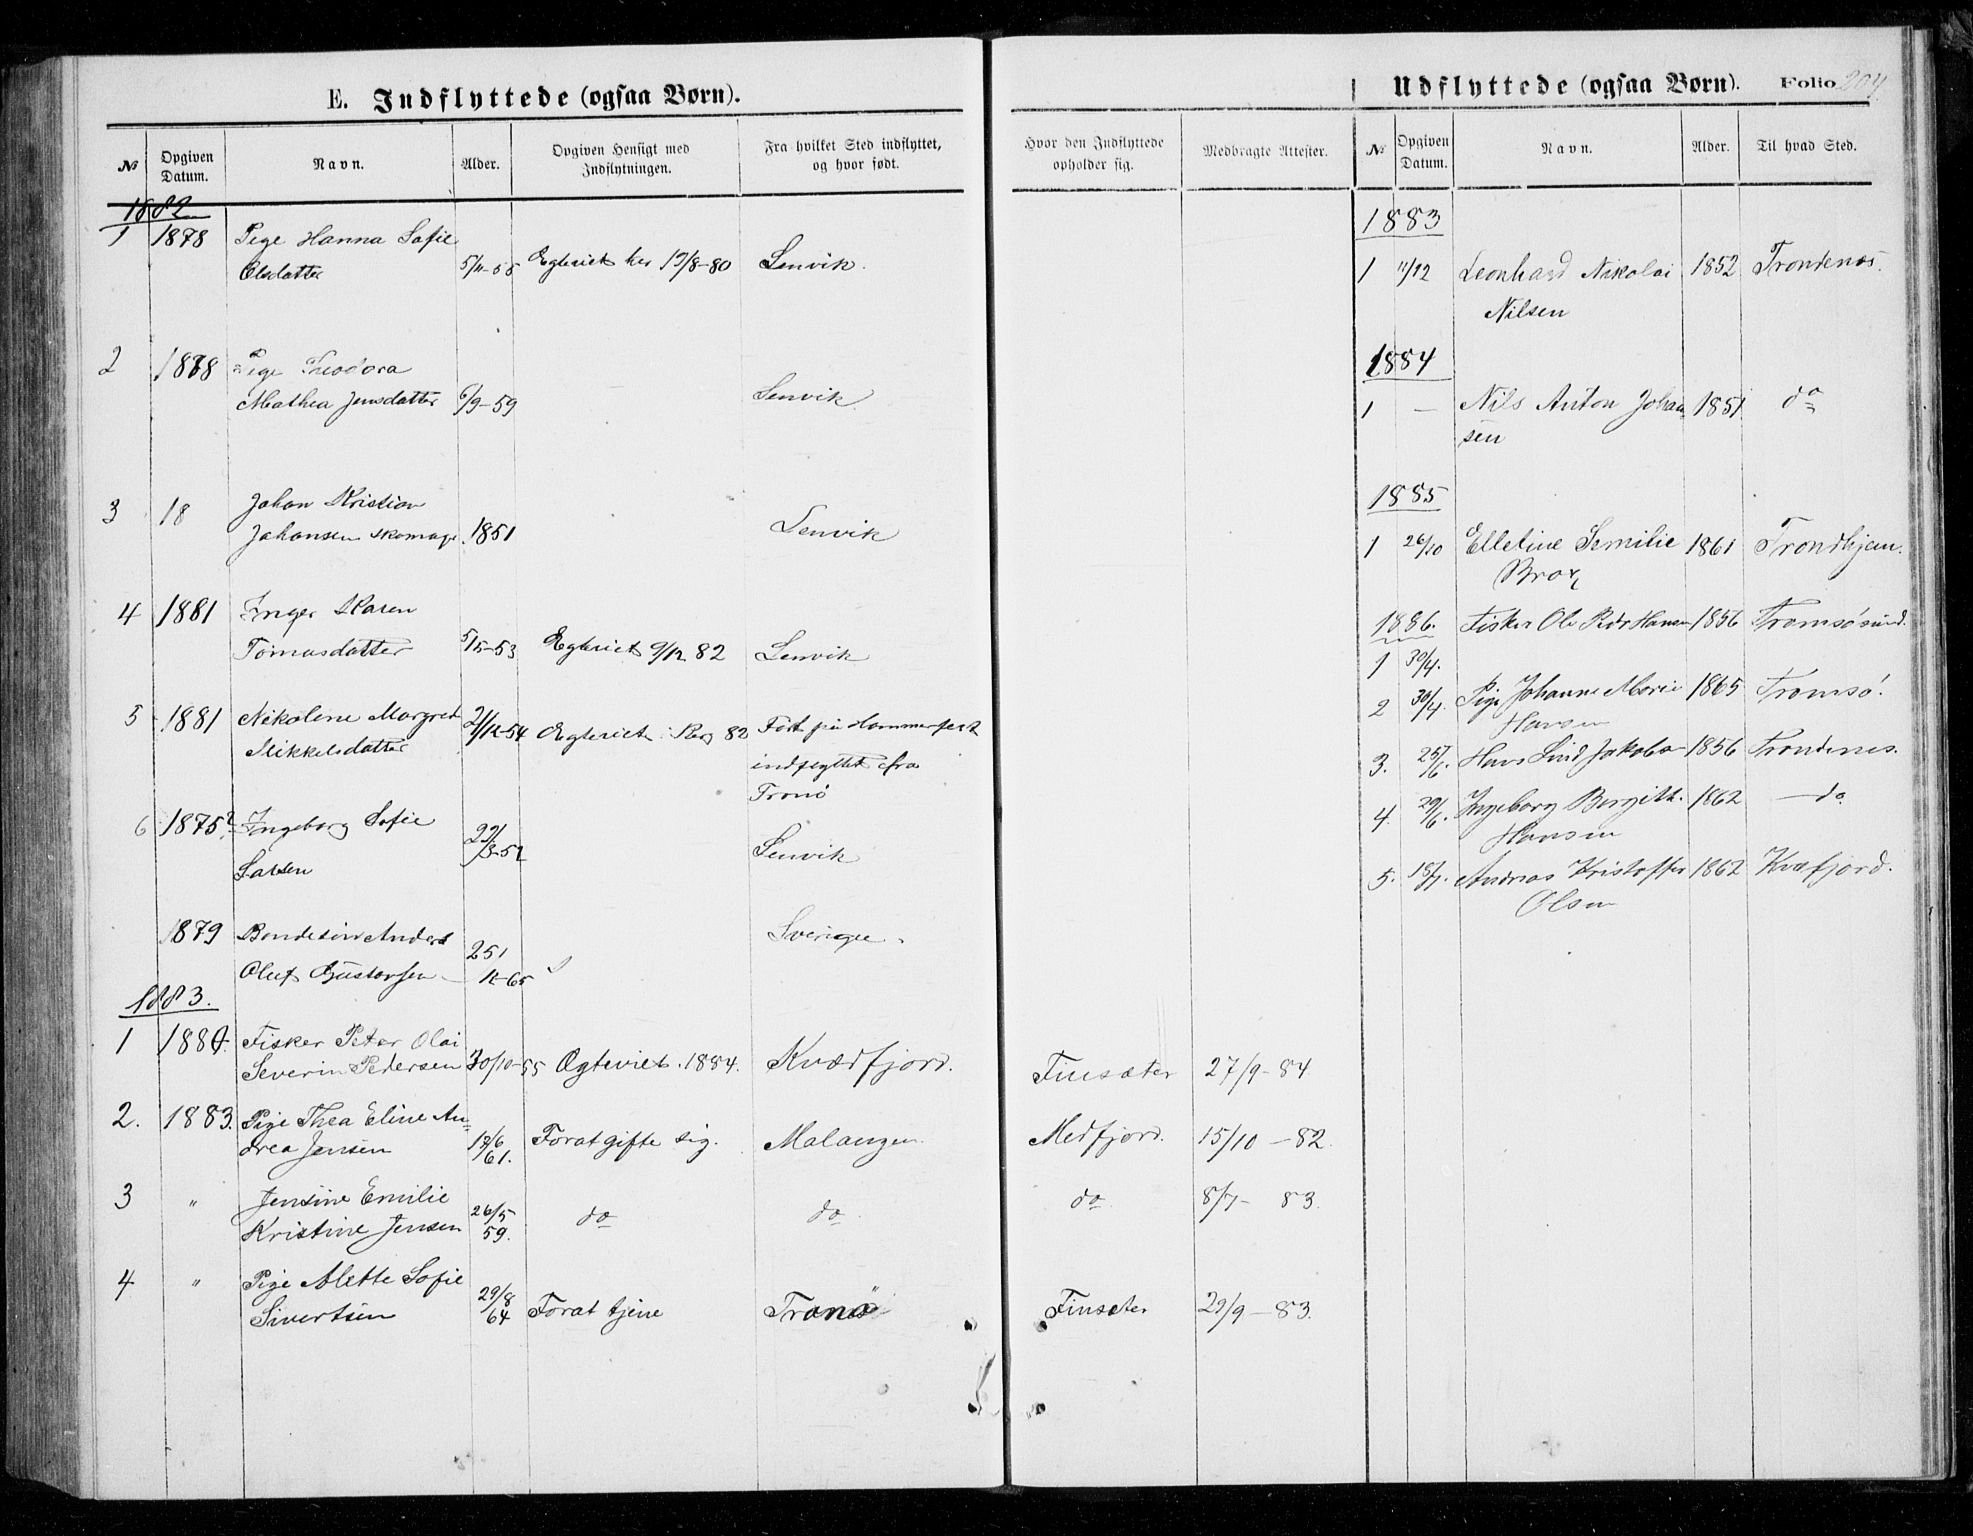 E. Indflyttede (ogsaa Børn).
№ Opgiven Datum. Navn. Alder. Opgiven Hensigt med Indflytningen. Fra hvilket Sted indflyttet, og hvor født. Hvor den Indflyttede opholder sig. Medbragte Attester.
1882
1 1878 Pige Hanna Sofie
Olsdatter 5/11-55 Egteviet her 19/8-80 Lenvik.
2 1878 Pige Theodora
Mathea Jensdatter 6/9-59 Lenvik
3 18 Johan Kristian
Johansen skomager 1851 Lenvik
4 1881 Inger Karen
Tomasdatter 5/5-53 Egteviet 9/12 82 Lenvik
5 1881 Nikolene Margret 21/12-54 Egteviet 82 Født på Hammerfest
Mikkelsdatter indflyttet fra
Tranö
6 1875? Ingeborg Sofie
Larsen Lenvik
1879 Anders Sverige.
Oluf Gustavsen 25/12-65
1883.
1 1880. Fisker Peter Olai
Severin Pedersen 30/10-55 Ægteviet. 1884. Kvædfjord. Finsæter 27/9-84
2. 1883. Pige Thea Eline An=
drea Jensen 17/6 61. Forat gifte sig. Malangen. Medfjord. 15/10-82.
3 " Jensine Emilie
Kristine Jensen 26/5 59. do do do 8/7- 83.
4 " Pige Alette Sofie
Sivertsen 29/8 64 Forat tjene Tranö Finsæter 29/9-83.
Udflyttede (ogsaa Børn). Folio 204
№ Opgiven Datum. Navn. Alder. Til hvad Sted.
1883
1 11/12 Leonhard Nikolai 1852 Trondenæs.
Nilsen
1884
1 — Nils Anton Johan= 1851 do
sen
1885
1 26/10 Elletine Semilie 1861 Trondhjem.
Brox
1886. Fisker Ole Peder Hansen 1856 Tromsøsund.
1 30/4.
2 30/4. Pige Johanne Marie 1865 Tromsø.
Hansen
3. 25/6. Hans Lind Jakobs 1856 Trondenes.
4. 29/6. Ingeborg Bergitte 1862 — do
Hansen
5. 15/7. Andreas Kristoffer 1862 Kvæfjord.
Olsen